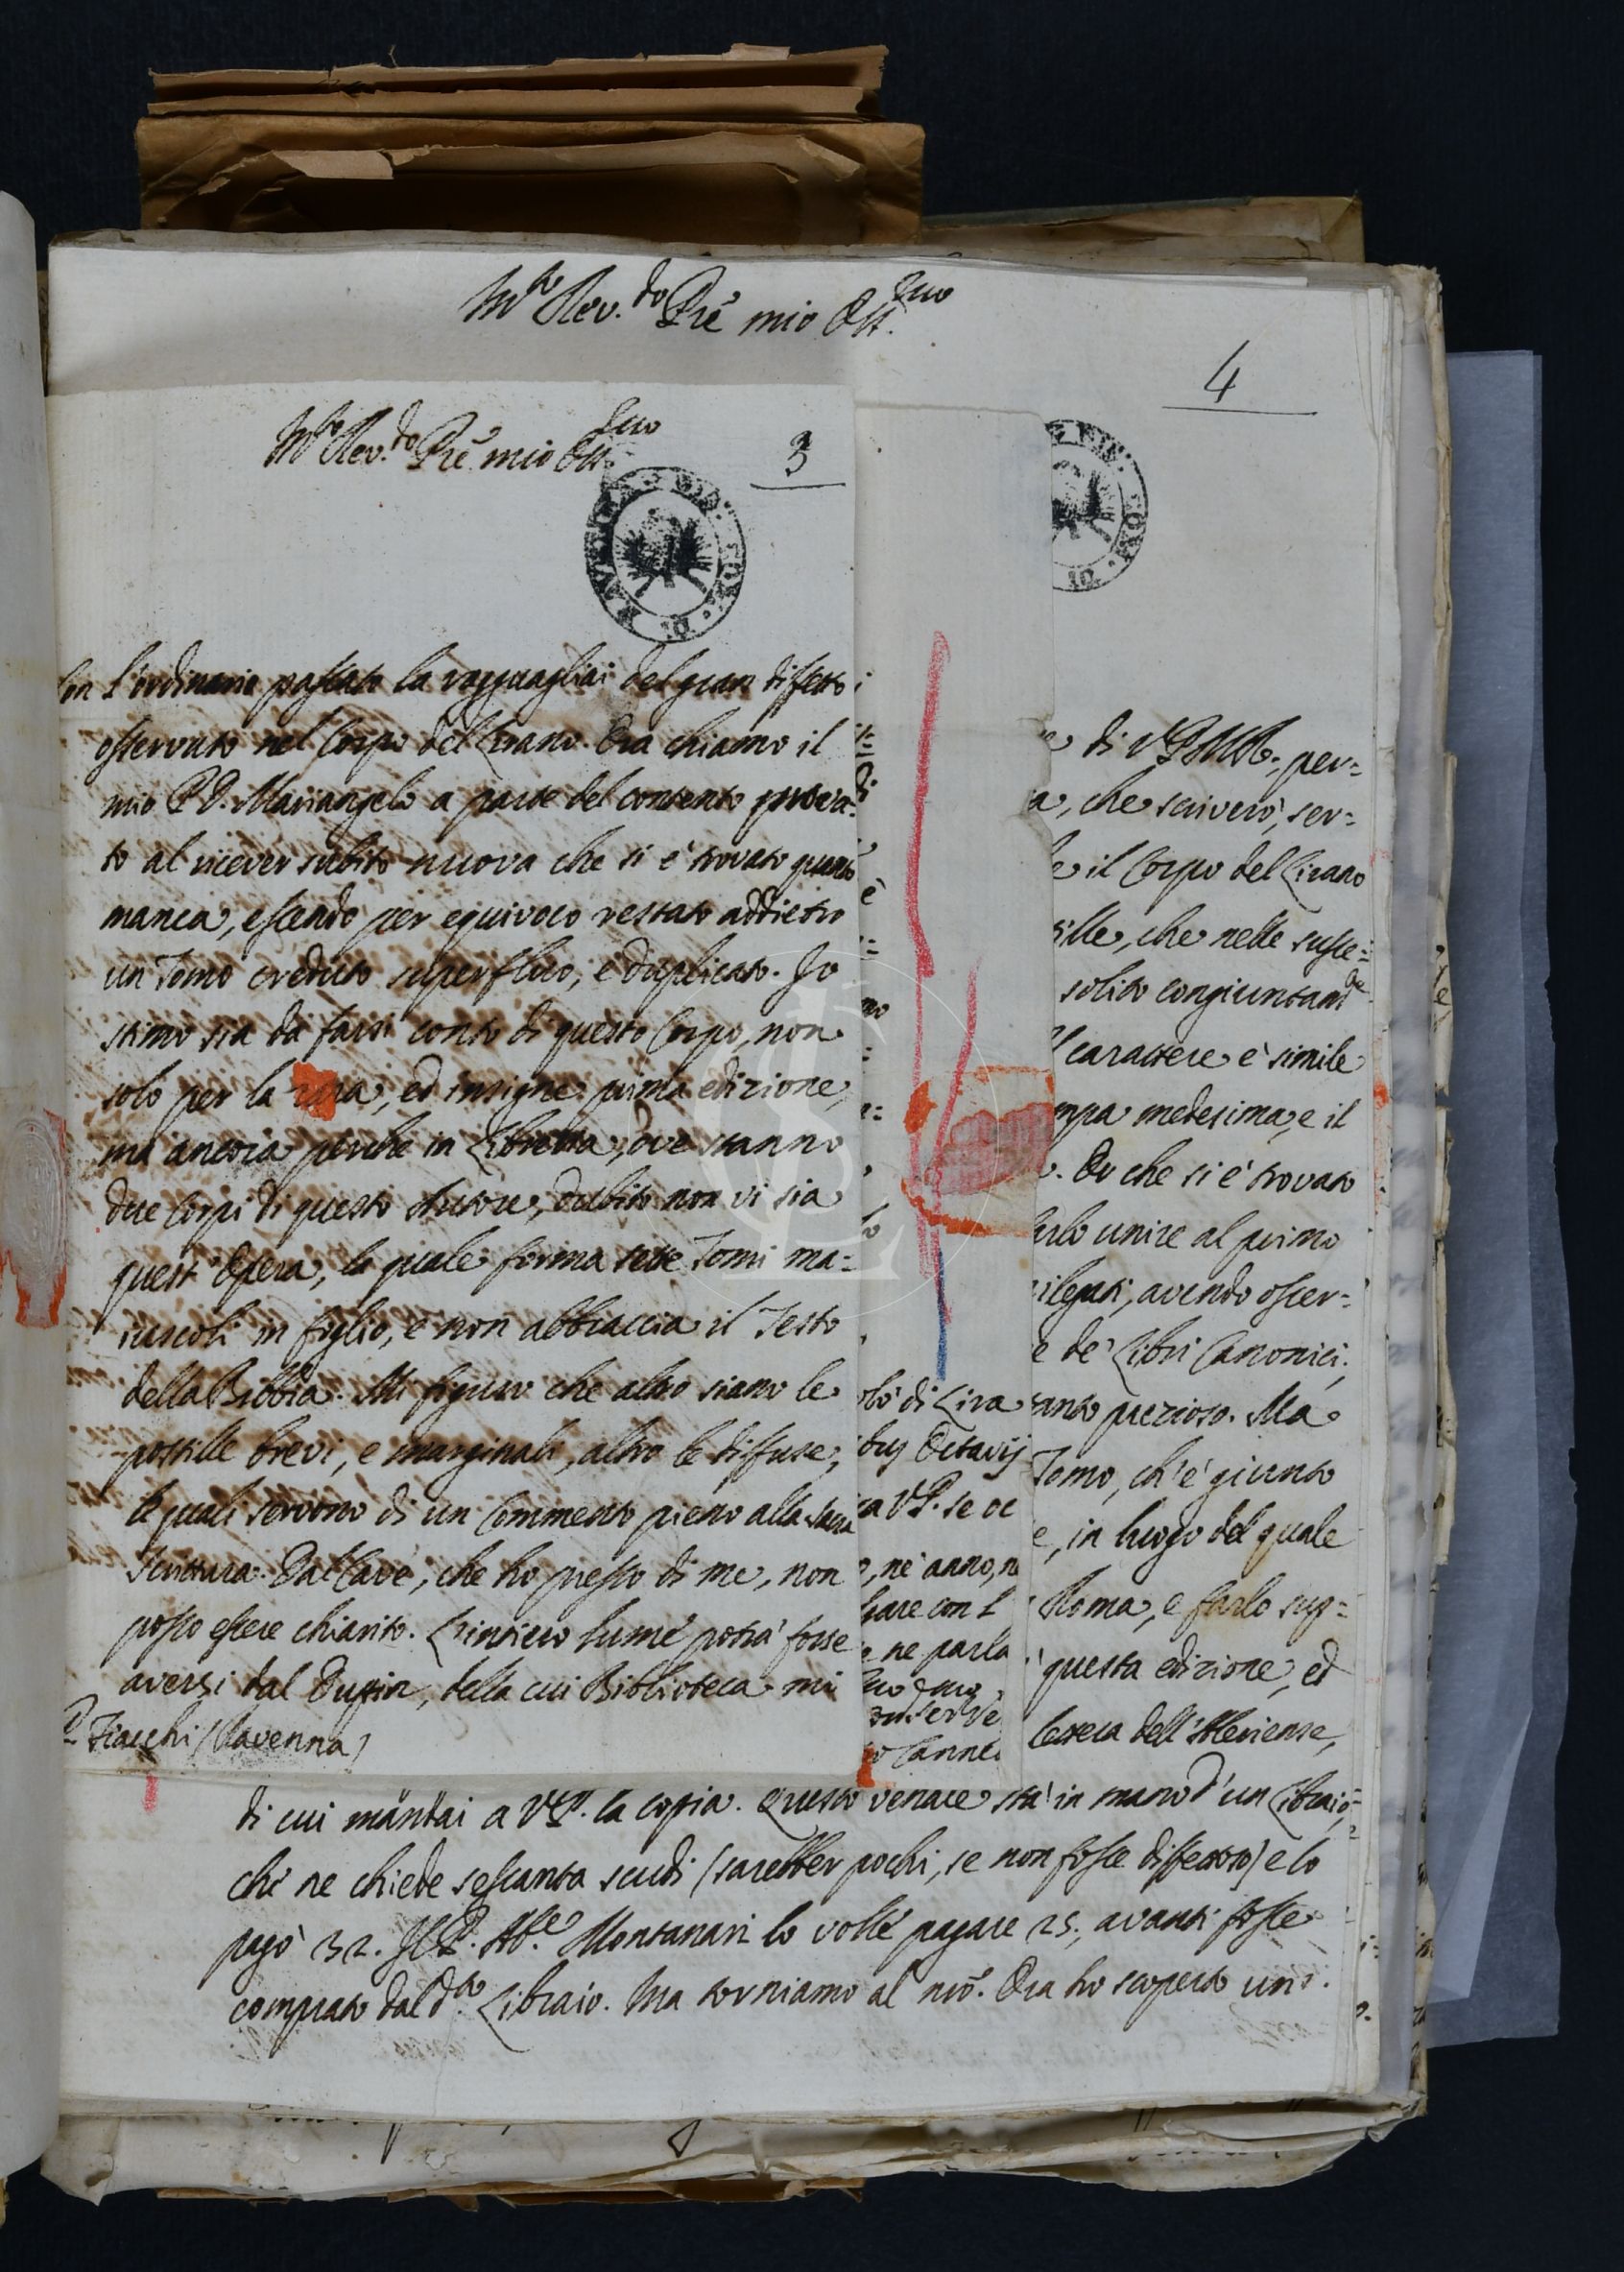 M.to Rev.do Prē mio Oss.mo
4
M.to Rev.do Prē mio Oss.mo
3
Con l'ordinario passato la ragguagliai del gran diffetto
osservato nel Corpo del Lirano. Ora chiamo il
mio P. D. Mariangelo a parte del contento prova=
to al ricever subito nuova che si è trovato quanto
manca, essendo per equivoco restato addietro
un Tomo creduto superfluo, e duplicato. Io
stimo sia da farsi conto di questo Corpo, non
solo per la rara, ed insigne prima edizione,
ma ancora perche in Libreria, ove stanno
due Corpi di questo Autore, dubito non vi sia
quest'Opera, la quale forma sette Tomi ma=
iuscoli in foglio, e non abbraccia il Testo
della Bibbia. Mi figuro che altro siano le
postille brevi, e marginali, altro le diffuse,
le quali servono di un Commento pieno alla sacra
Scrittura. Dal Cave, che ho presso di me, non
posso essere chiarito. L'intiero lume potrà forse
aversi dal Dupin, della cui Biblioteca mi
P. Fiacchi (Ravenna)
è
mo
lo
olò di Lira
bus Octavij
a V.P. se oc
, nè anno, n
hare con l
ne parla
Canne
di V.P.M.R., per=
a, che scriverò, ser=
e il Corpo del Lirano
ille, che nelle susse=
solito congiuntam.te
l carattere è simile
mpa medesima, e il
. Or che si è trovato
arlo unire al primo
ilegati, avendo osser=
e de' Libri Canonici,
tanto prezioso. Ma
Tomo, ch'è giunto
e, in luogo del quale
Roma, e farlo sup=
questa edizione, ed
teca dell'Aleriense,
di cui mandai a V.P. la copia. Questo verace stà in mano d'un Libraio,
che ne chiede sessanta scudi (sarebber pochi, se non fosse diffettoso) e lo
pagò 32. Il P. Ab.e Montanari lo volle pagare 25, avanti fosse
comprato dal d.to Libraio. Ma torniamo al nrō. Ora ho scoperto un